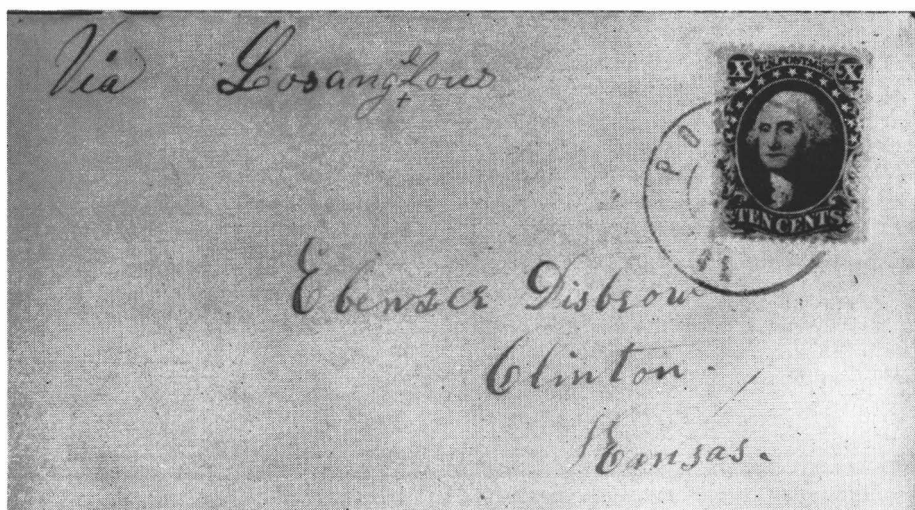 Via Losangelous
X U.S. POSTAGE X
PO
TEN CENTS
Ebenezer Disbrow
Clinton.
Kansas.